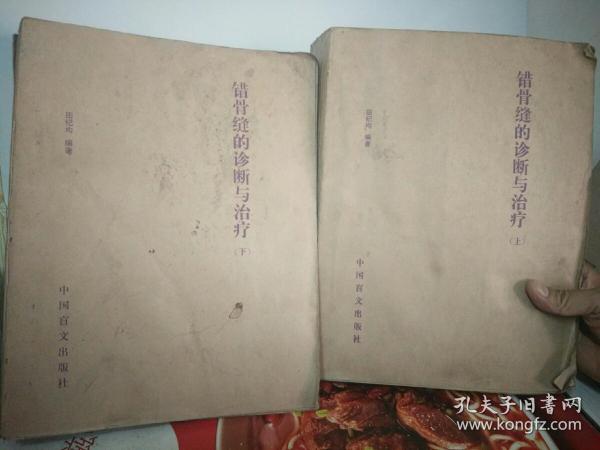 错骨缝的诊断与治疗
（下）
田纪均 编著
中国盲文出版社
错骨缝的诊断与治疗
（上）
田纪均 编著
中国盲文出版社
孔夫子旧书网
www.kongfz.com